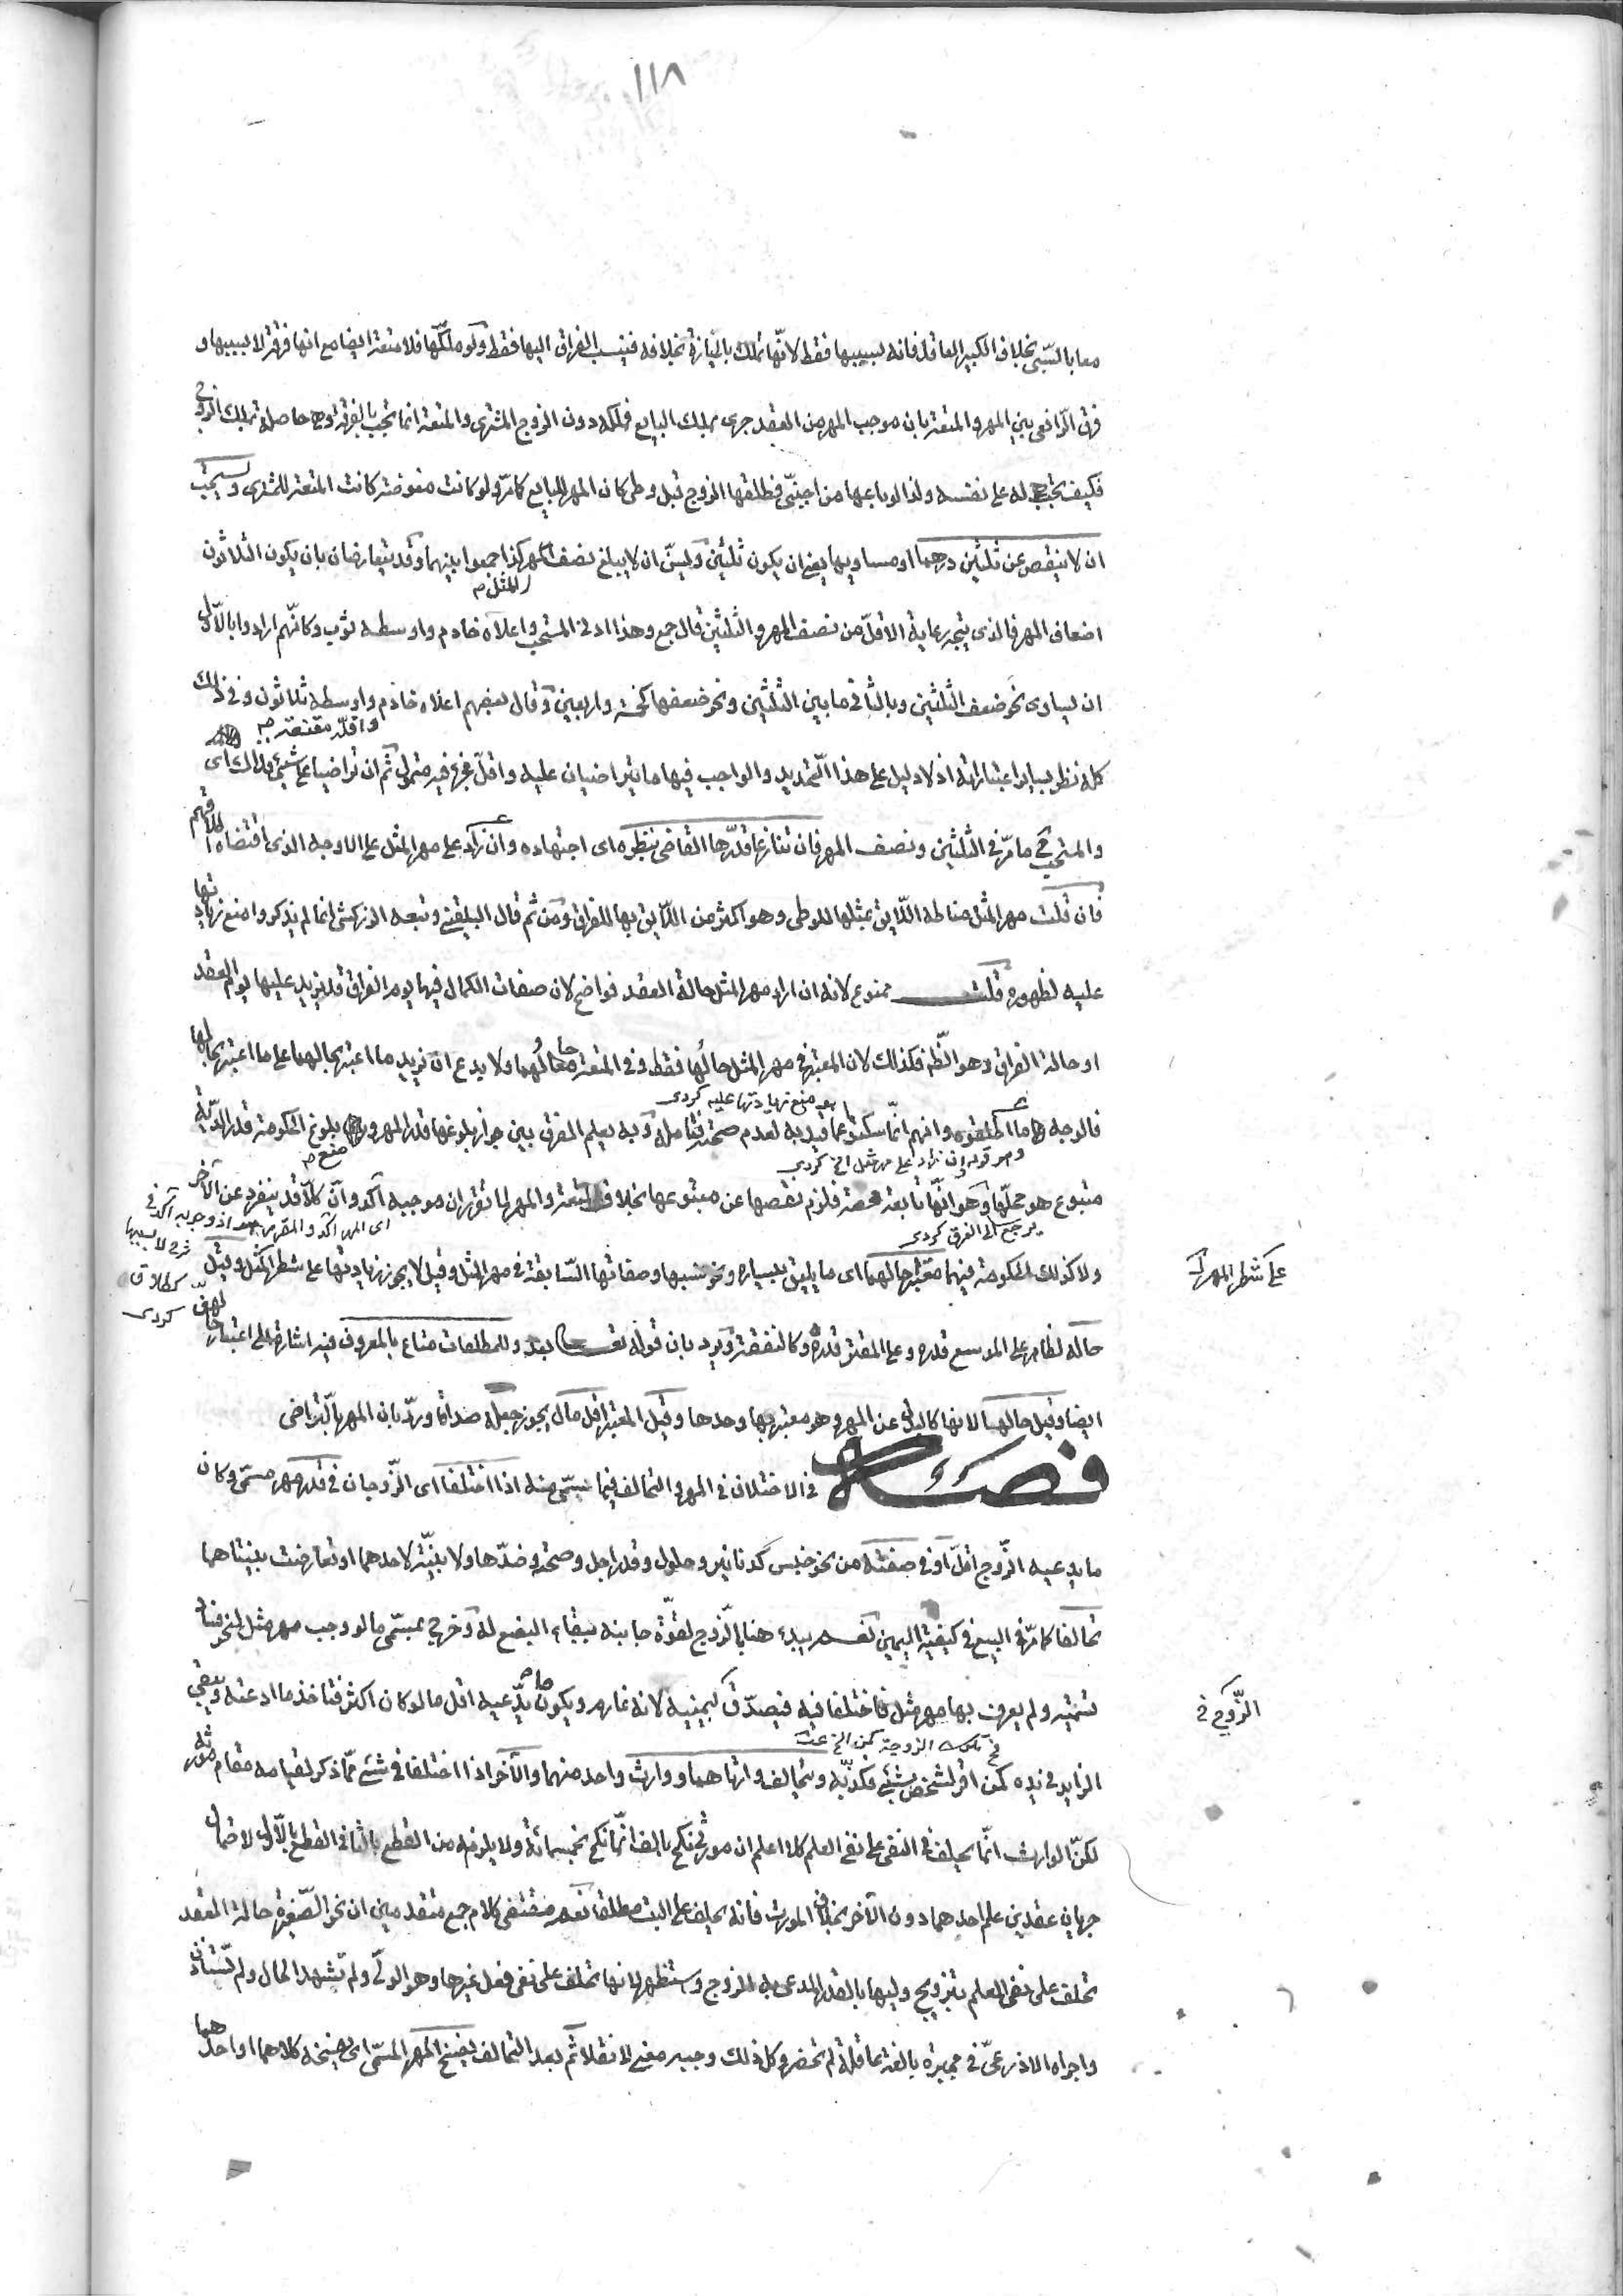 ١١٨
معا بالسّبى بخلاف الكبير العاقل فانه بسببها فقط لانّها تملك بالحيازة بخلافه فينسب الفراق اليها فقط ولو ملكها فلا متعة ايضا مع انها فرقة لا بسببها و
فرق الرّافعى بين المهر والمتعة بان موجب المهر من العقد جرى بملك البايع فملكه دون الزوج المشترى والمتعة انما تجب بالفرقة وهى حاصلة بملك الزوج
فكيف تجب له على نفسه ولذا لو باعها من اجنبىّ فطلقها الزوج قبل وطى كان المهر للبايع كما مرّ ولو كانت مفوضة كانت المتعة للمشترى ويستحب
ان لا ينقص عن ثلثين درهما او مساويها يعنى ان يكون ثلثين ويسنّ ان لا يبلغ نصف المهر كذا جمعوا بينهما وقد يتعارضان بان يكون الثلاثون
المثل م
اضعاف المهر فالذى يتجه رعاية الاقلّ من نصف المهر والثلثين قال جمع وهذا ادنى المستحب واعلاه خادم واوسطه ثوب وكانّهم ارادوا بالاوّل
ان يساوى نحو ضعف الثلثين وبالثانى ما بين الثلثين ونحو ضعفها كخمسة واربعين وقال بعضهم اعلاه خادم واوسطه ثلاثون وفى ذلك
واقلّه مقنعة م
كله نظر بساير اعتباراته اذ لا دليل على هذا التحديد والواجب فيها ما يتراضيان عليه واقلّ مجزئ فيه متمول ثم ان تراضيا على شئ فذاك اى
والمستحب ما مرّ فى الثلثين ونصف المهر فان تنازعا قدّرها القاضى بنظره اى اجتهاده وان زاد على مهر المثل على الاوجه الذى اقتضاه اطلاقهم
فان قلت مهر المثل مناطه اللّايق بمثلها للوطى وهو اكثر من اللّايق بها للفراق ومن ثم قال البلقينى وتبعه الزركشى انما لم يذكروا منع زيادتها
عليه لظهوره قلت ممنوع لانه ان اراد مهر المثل حالة العقد فواضح لان صفات الكمال فيها يوم الفراق قد يزيد عليها يوم العقد
او حالة الفراق وهو الظّم فكذلك لان المعتبر فى مهر المثل حالُها فقط وفى المتعة حالُهما ولا يدع ان يزيد ما اعتبر بحالهما على ما اعتبر بحالها
فالوجه ما اطلقوه وانهم انّما سكتوا عما قيد به لعدم صحته فتامله وبه يعلم الفرق بين جواز بلوغها قدر المهر و بلوغ الحكومة قدر الدّية
بعد منع زيادتها عليه كردى
منع م
وهو قوله وان زاد على مهر مثل الخ كردى
متبوع هو محلّها وهو انّها تابعة محضة فلزم نقصها عن متبوعها بخلاف المتعة والمهر لما تقرر ان موجبه آكد وانّ كلاّ قد ينفرد عن الآخر
يرجع الى الفرق كردى
اى المهر آكد
ولا كذلك الحكومة فيهما معتبرا حالهما اى ما يليق بيساره ونحو نسبها وصفاتها السّابقة فى مهر المثل وقيل لا يجوز زيادتها على شطر المثل وقيل
على شطر المهر
كردى
حاله لظاهر على الموسع قدره وعلى المقتر قدره وكالنفقة ويرد بان قوله تعـ بعد وللمطلقات متاع بالمعروف فيه اشارة الى اعتبار حالهنّ
ايضا وقيل حالها لانها كالبدل عن المهر وهو معتبر بها وحدها وقيل المعتبر اقل مال يجوز جعله صداقا وردّ بان المهر بالتّراضى
فصــل فى الاختلاف فى المهر والتحالف فيما سمّى منه اذا اختلفا اى الزّوجان فى قدر مهر مسمّى وكان
ما يدعيه الزّوج اقلّ او فى صفته من نحو جنس كدنانير وحلول وقدر اجل وصحته وضدّها ولا بيّنة لاحدهما او تعارضت بيّنتاهما
تحالفا كما مرّ فى البيع فى كيفية اليمين نعم يبدء هنا بالزّوج لقوّة جانبه ببقاء البضع له وخرج بمسمّى ما لو وجب مهر مثل لنحو فساد
تسمية ولم يعرف بها مهر مثل فاختلفا فيه فيصدّق بيمينه لانه غارم ويكون ما يدّعيه اقل ما لو كان اكثر فتاخذ ما ادعته ويبقى
الزّوج فى
الزايد فى يده كمن اقر لشخص بشئ فكذّبه ويتحالف وارثاهما ووارث واحد منهما والآخر اذا اختلفا فى شئ ممّا ذكر لقيامه مقام مورثه
لكنّ الوارث انّما يحلف فى النفى على نفى العلم كلا اعلم ان مورثى نكح بالف انّما نكح بخمسمائة ولا يلزمه من القطع بالثانى القطع بالاوّل لاحتمال
جريان عقدين علم احدهما دون الآخر بخلاف المورث فانه يحلف على البت مطلقا نعم مقتضى كلام جمع متقدمين ان نحو الصّغيرة حالة العقد
تحلف على نفى العلم بتزويج وليها بالقدر المدعى به الزوج واستظهر لانها تحلف على نفى فعل غيرها وهو الولىّ ولم تشهد الحال ولم تستاذن
واجراه الاذرعىّ فى مجبرة بالغة عاقلة لم تحضر وكل ذلك وجيه معنى لا نقلا ثم بعد التحالف يفسخ المهر المسّمى اى يفسخه كلاهما او احدهما